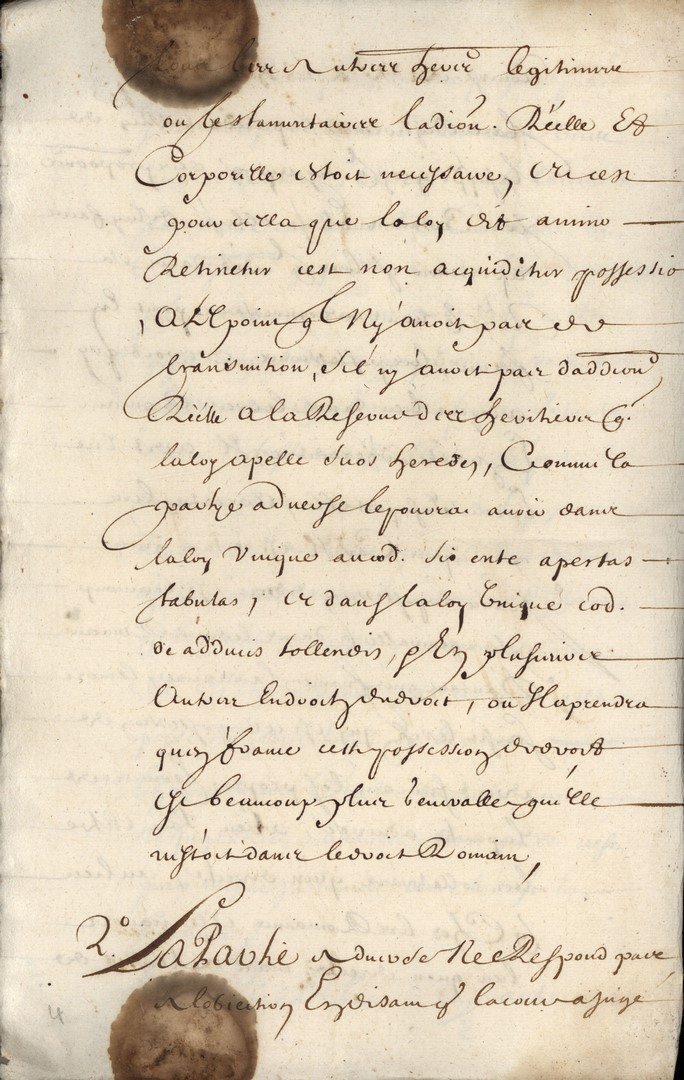 les autres heres legitimes
ou testamentaires ladion. Réelle Et
Corporelle estoit necessaire, Et cest
pour cella que laloy dit animo
Retinetur cest non acquiditur possessio
, All point q Il Ny avoit pas de
transmition, sil ny avoit pas daddion
Réelle a la Reserve des heritiers q.
laloy apelle suos heredes, Comme la
partye adverse le pourra avoir dans
laloy Vnique au cod. Si ente apertas
tabulas, et dans laloy Vnique cod.
de adducis tollendis, et En plusieurs
Autres Endroits du droit, ou Il aprendra
quen france cette possession de droit
Est beaucoup plus generalle quelle
nestoit dans le droit Romain,
2.° La Partie aduerse Ne Respond pas
a lobiection En disant q la cour a jugé
4